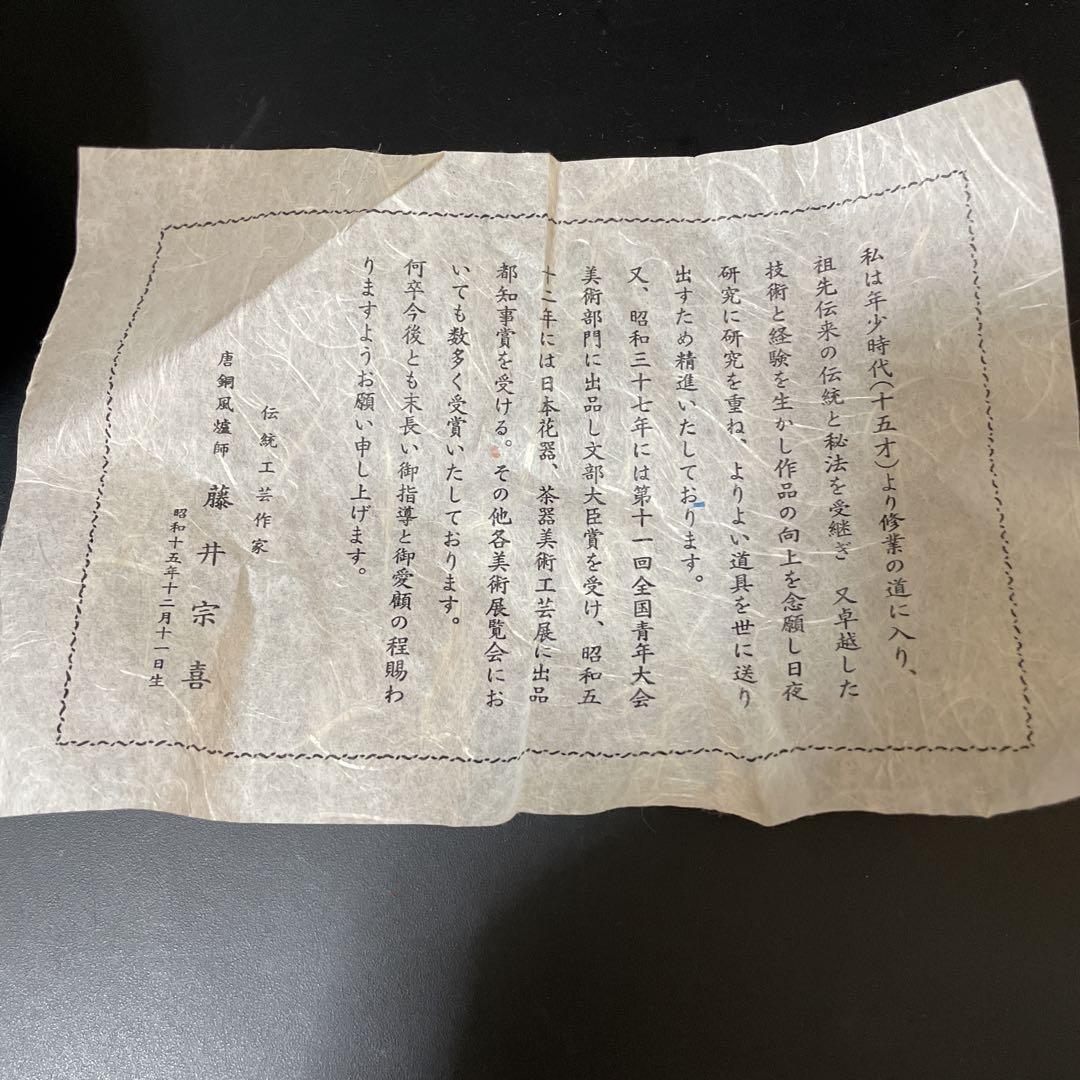 私は年少時代(十五才)より修業の道に入り、
祖先伝来の伝統と秘法を受継ぎ 又卓越した
技術と経験を生かし作品の向上を念願し日夜
研究に研究を重ね、よりよい道具を世に送り
出すため精進いたしております。
又、昭和三十七年には第十一回全国青年大会
美術部門に出品し文部大臣賞を受け、昭和五
十二年には日本花器、茶器美術工芸展に出品
都知事賞を受ける。その他各美術展覧会にお
いても数多く受賞いたしております。
何卒今後とも末長い御指導と御愛顧の程賜わ
りますようお願い申し上げます。
伝統工芸作家
唐銅風爐師 藤井宗喜
昭和十五年十二月十一日生